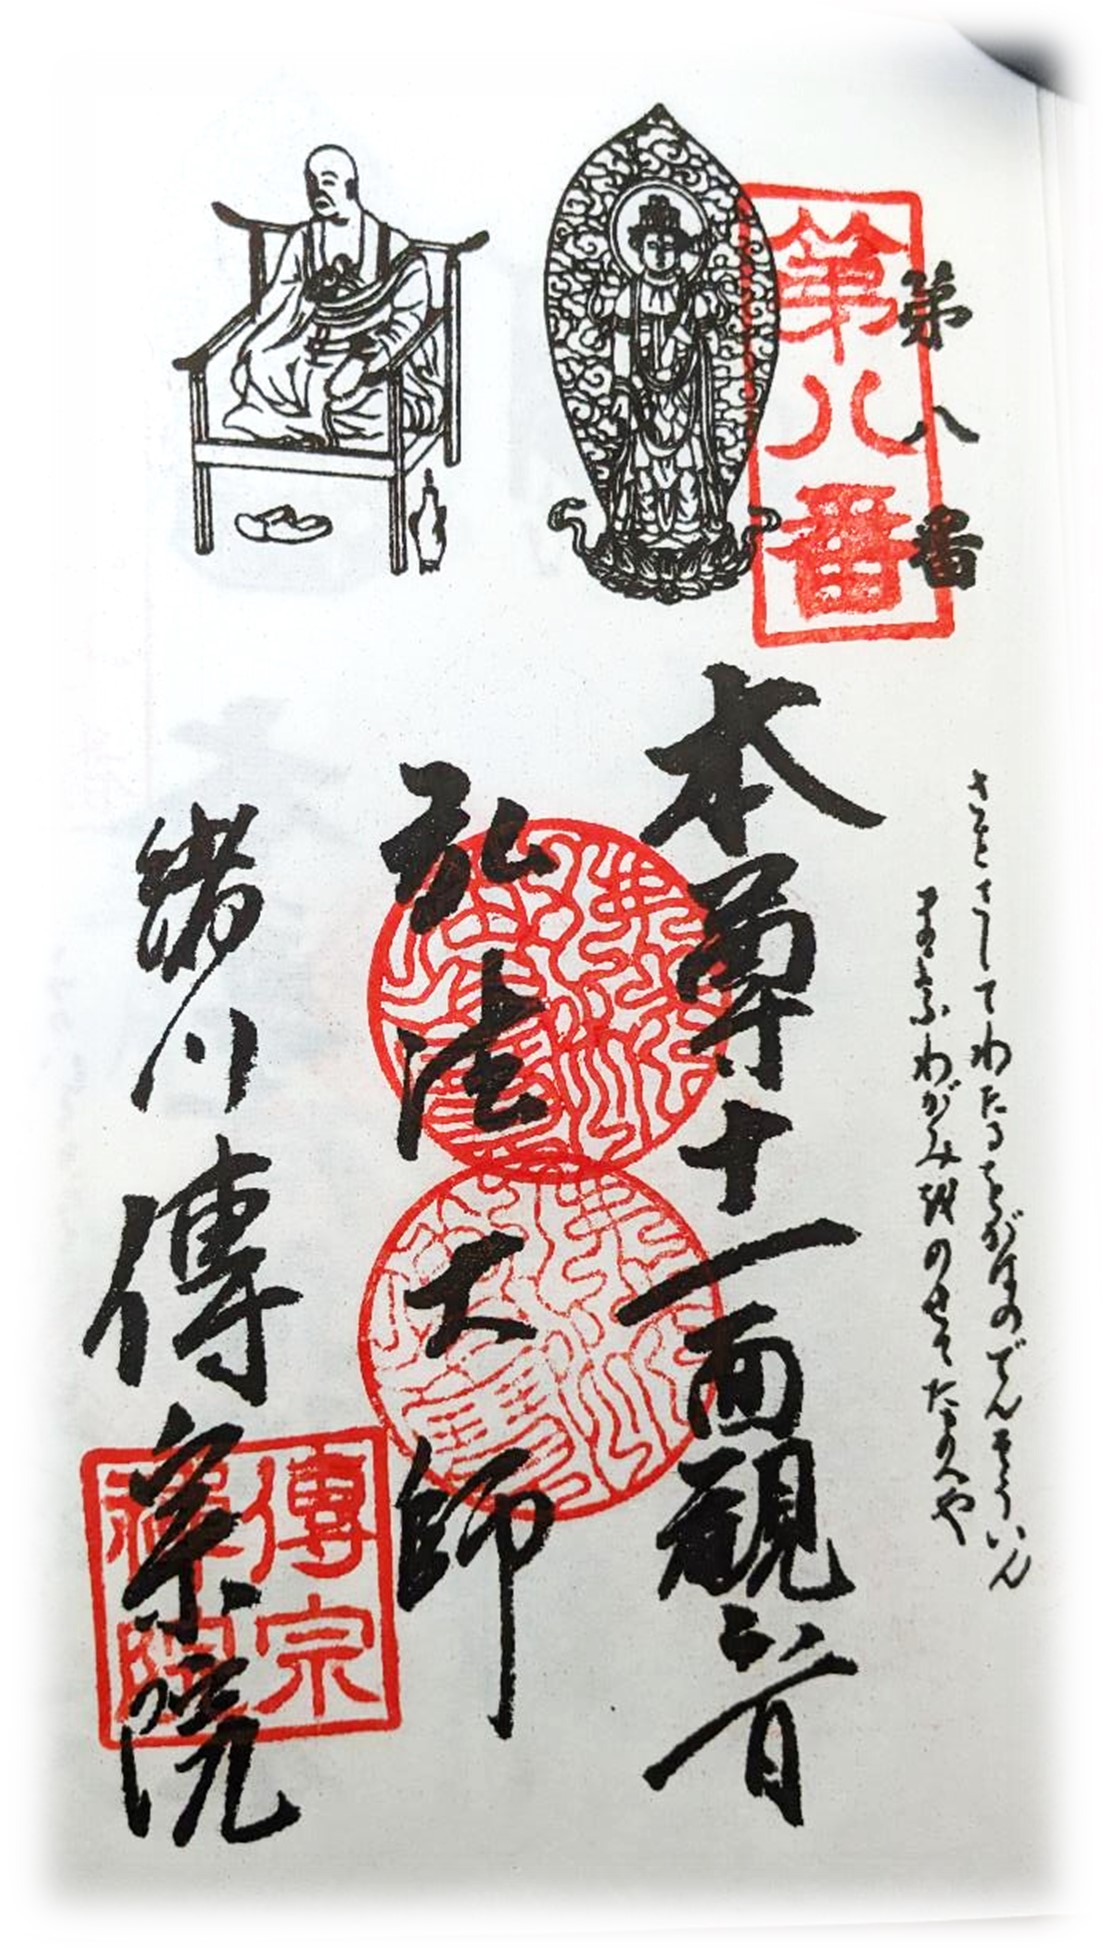 さとさしてわたるをがはのでんそういん
まよふわがみ越のせてたまへや
第八番
第八番
本尊十一面観音
弘法大師
緒川傳宗院
傳宗
禪院